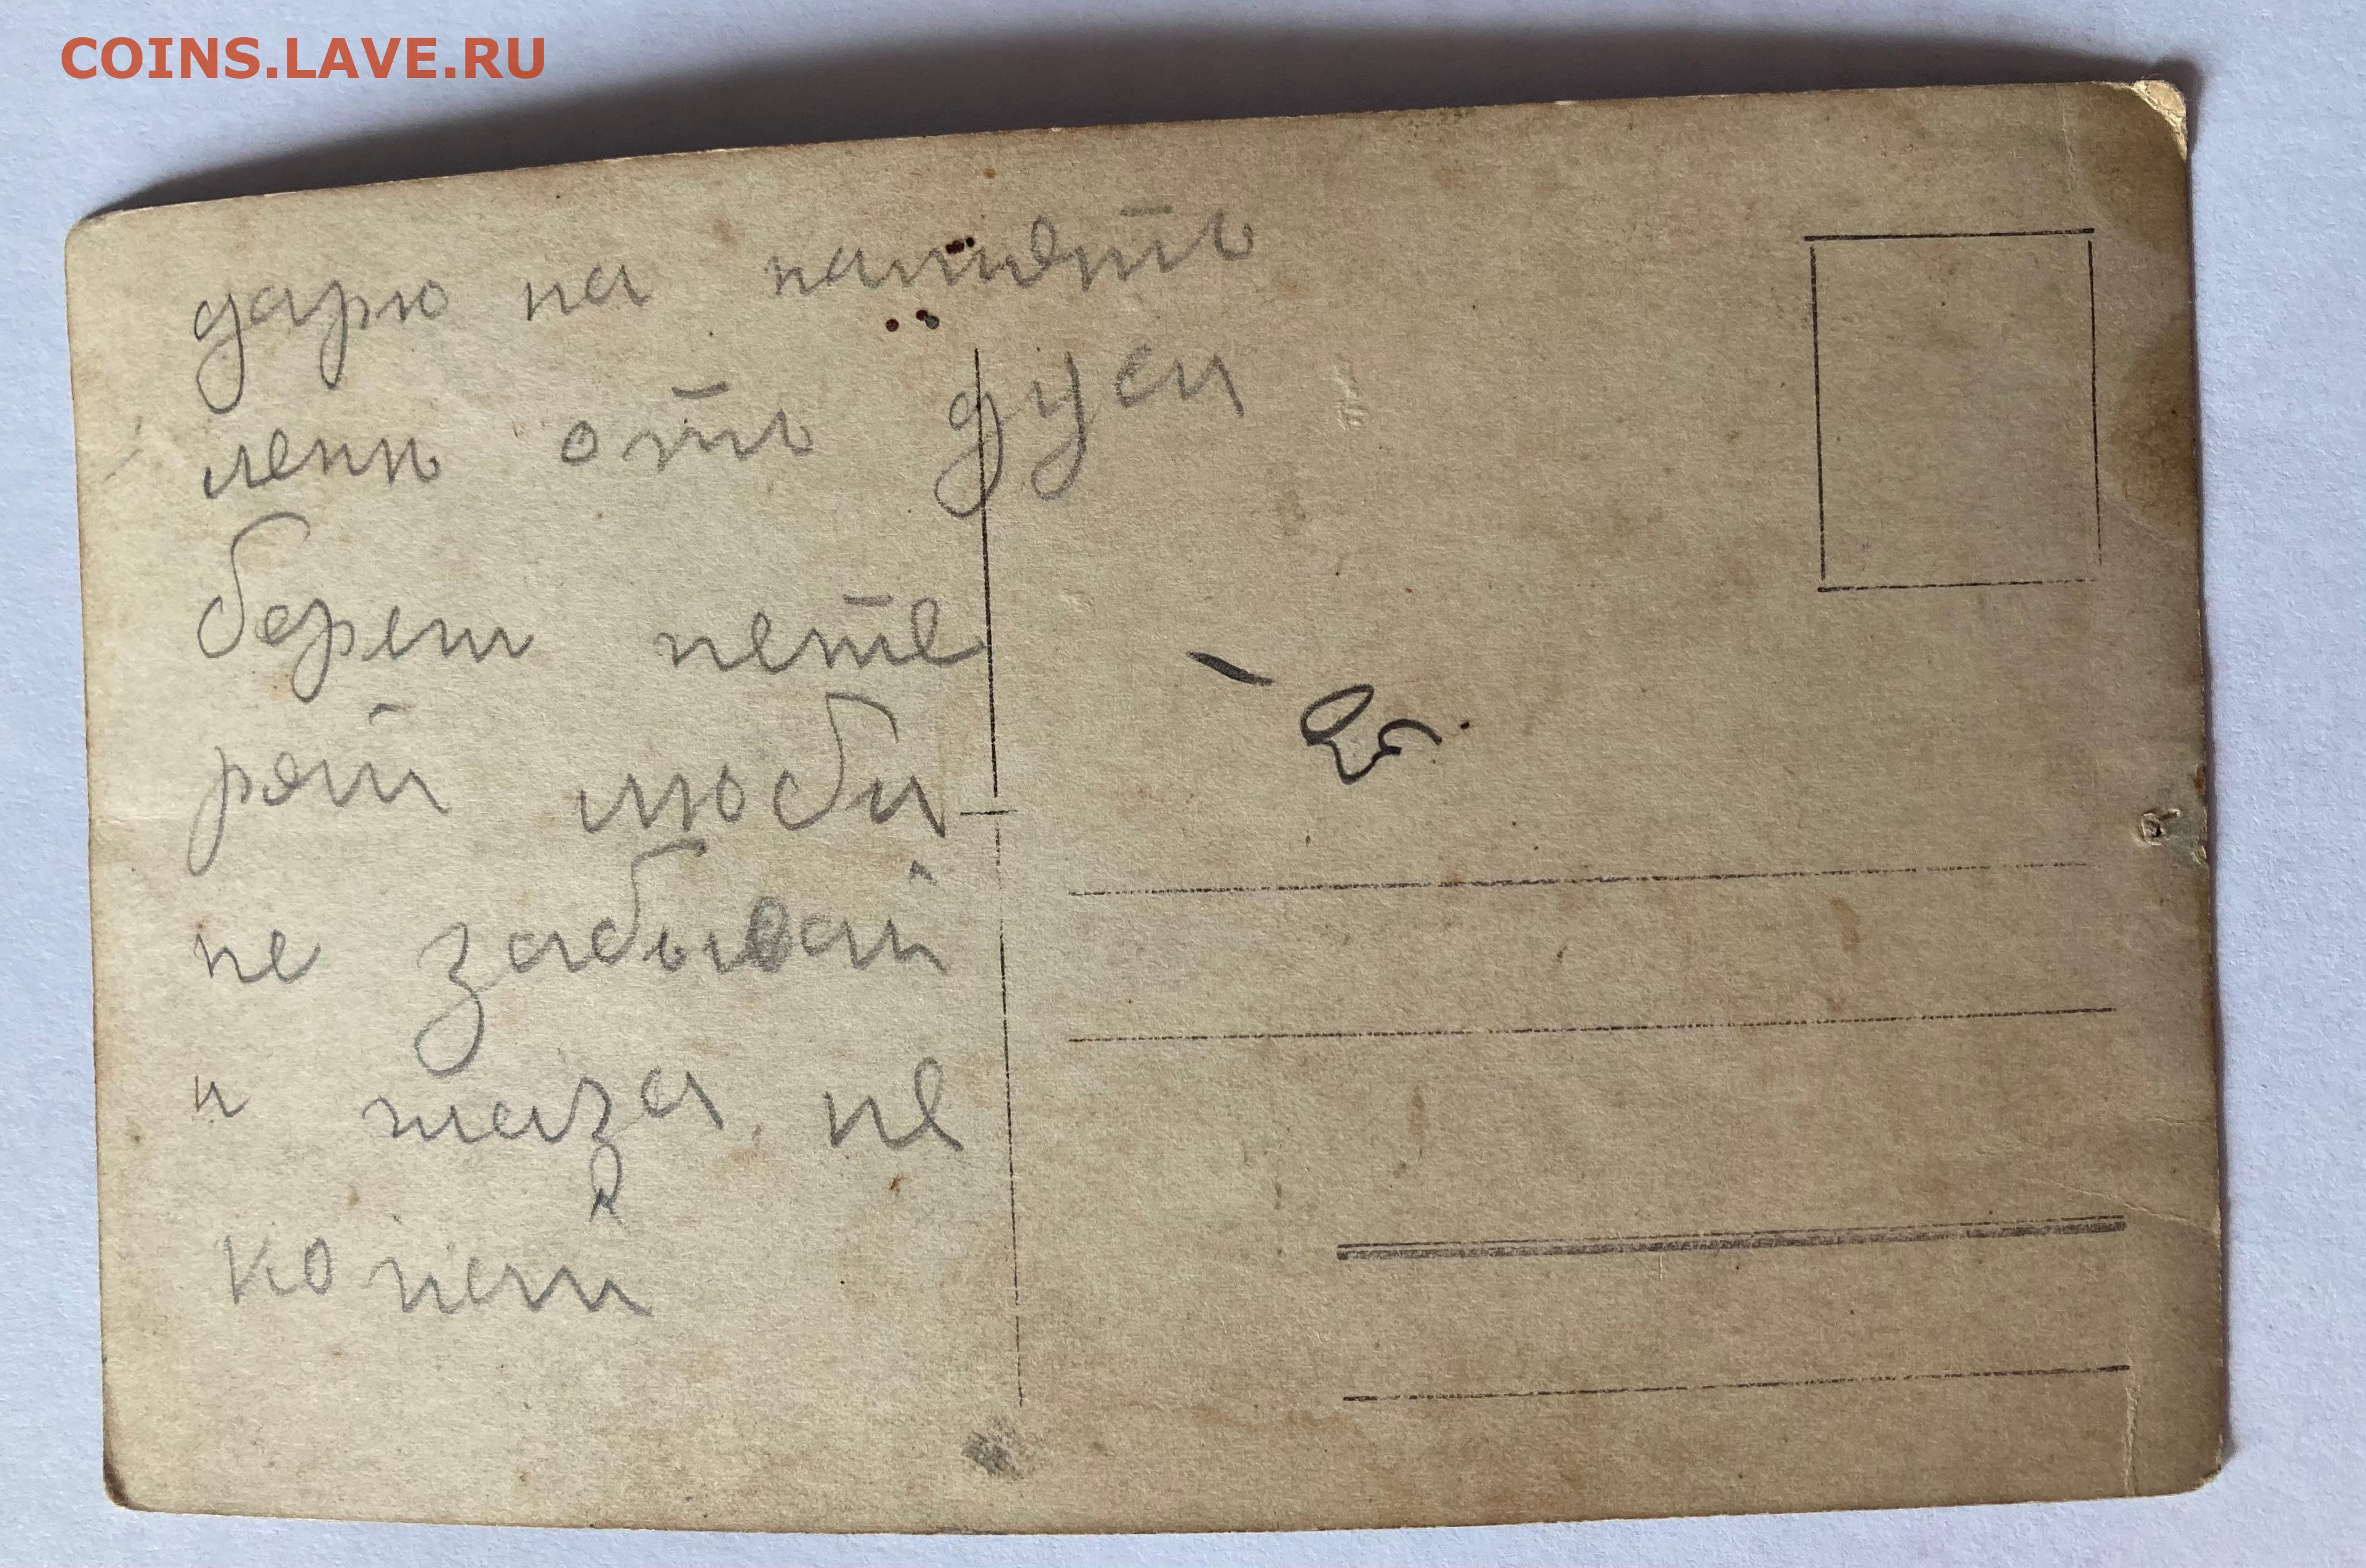 COINS.LAVE.RU
дарю на паметь
лень отъ дуси
береги не те
рай люби
не забывай
и глаза не
копай